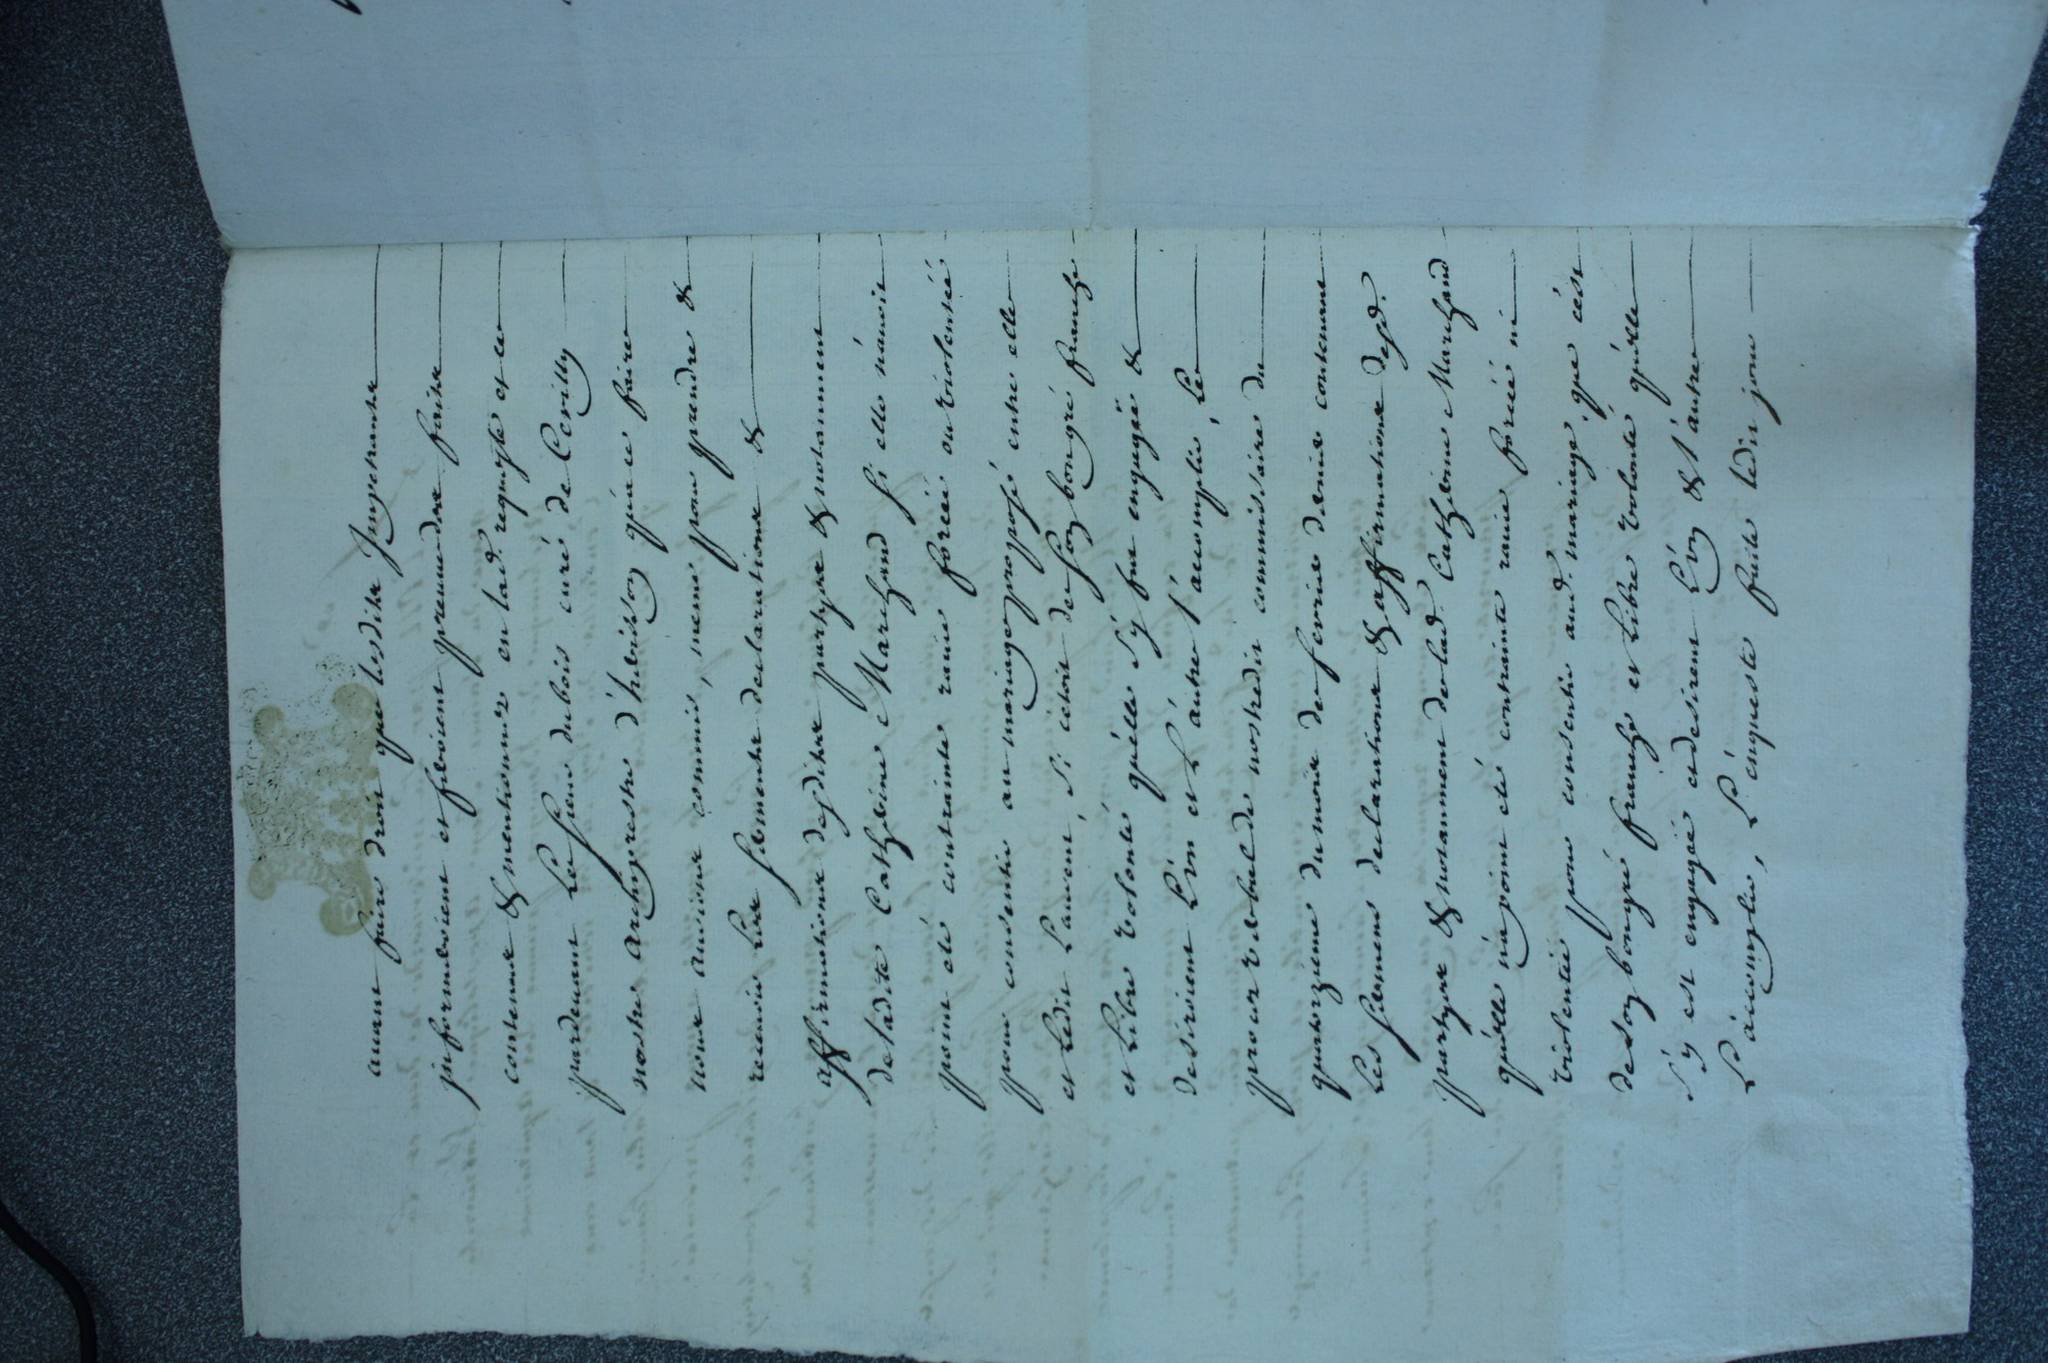 auant faire droit que lesdits Impetrants
informeroient et feroient preuue des faits
contenus & mentionnés en lad. requeste et ce
pardeuant le sieur dubois curé de Cerilly
nostre archiprestre d'herisson qu'a ce faire
nous aurions commis, mesme pour prendre &
receuoir les serments declarations &
affirmations desdites partyes & notamment
de ladite Catherine Marchand si elle n'auoit
point eté contrainte rauie forcée ou violentée
pour consentir au mariage proposé entre elle
et ledit Laurent, si cetoit de son bongré franche
et libre volonté qu'elle s'y fut engagée &
desiroient l'un et l'autre l'accomplir, le
procez verbal de nostredit commissaire du
quatorzieme du mois de feurier dernier contenant
les serment declarations & affirmations desd.
partyes & notamment de lad. Catherine Marchand
qu'elle n'a point eté contrainte rauie forcée ni
violentée pour consentir aud. mariage, que c'est
de son bongré franche et libre volonté qu'elle
s'y est engagée et desirent l'un & l'autre
l'accomplir, L'enqueste faite ledit jour